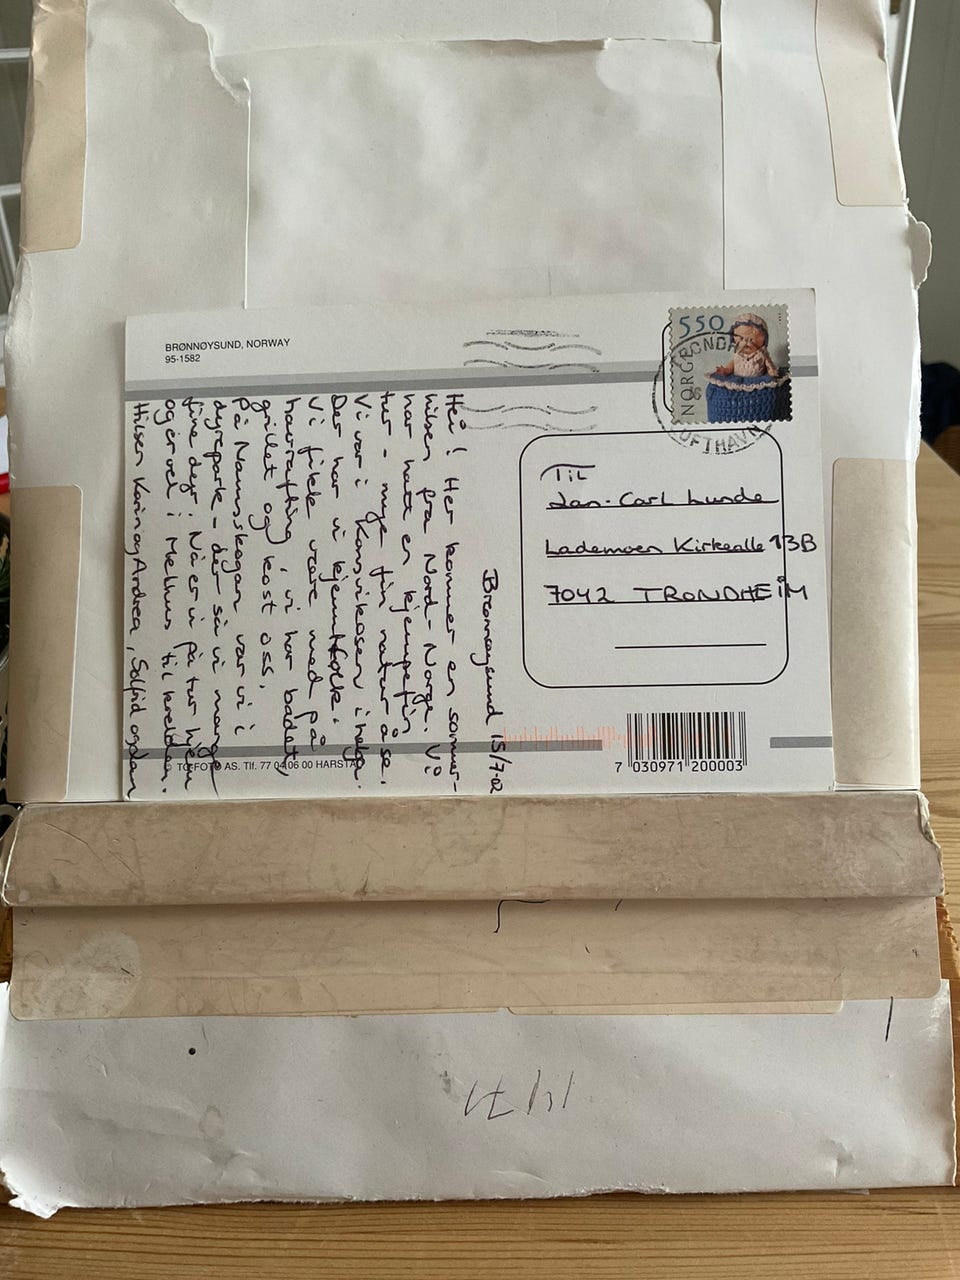 BRØNNØYSUND, NORWAY
95-1582
Brønnøysund 15/7-02
Hei! Her kommer en sommer-
hilsen fra Nord-Norge. Vi
har hatt en kjempefin
tur - mye fin natur å se.
Vi var i Korsvikosen i helga.
Der har vi kjentfolk.
Vi fikk være med på
havrafting, vi har badet,
grillet og kost oss.
På Namsskogan var vi i
dyrepark - der så vi mange
fine dyr! Nå er vi på tur hjem
og er vel i Melhus til kvelden.
Hilsen Karin og Andrea, Solfrid og
NORGE 550
TRONDH
LUFTHAVN
Til
Jan-Carl Lunde
Lademoen Kirkealle 13B
7042 TRONDHEIM
© TO-FOTO AS. Tlf. 77 04 06 00 HARSTAD
7 030971 200003